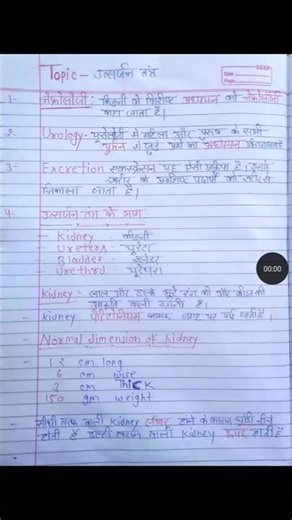 Topic - उत्सर्जन तंत्र
Date
Page
1- नेफ्रोलॉजी : किडनी के विशिष्ट अध्ययन को नेफ्रोलॉजी
कहा जाता है।
2- Urology - यूरोलॉजी में महिला और पुरुष के सभी
मूत्रन से जुड़े अंगों का अध्ययन किया जाता है
3- Excretion एक्सक्रेशन यह ऐसी प्रक्रिया है। इसमें
शरीर के अपशिष्ट पदार्थों को शरीर से
निकाला जाता है।
4- उत्सर्जन तंत्र के भाग
- Kidney - कीडनी
- Ureters - यूरेटर
- Bladder - ब्लेडर
- Urethrd - यूरेथरा
00:00
Kidney: - लाल और हल्के भूरे रंग की और बीज की
आकृति वाली रचना है।
- kidney पेरिटोनियम नामक जगह पर पाई जाती है।
- Normal dimension of kidney
- 12 cm long
6 cm wise
3 cm Thick
150 gm weight
- सीधी तरफ वाली kidney लीवर होने के कारण थोड़ी नीचे
होती है उल्टी तरफ वाली kidney ऊपर होती है